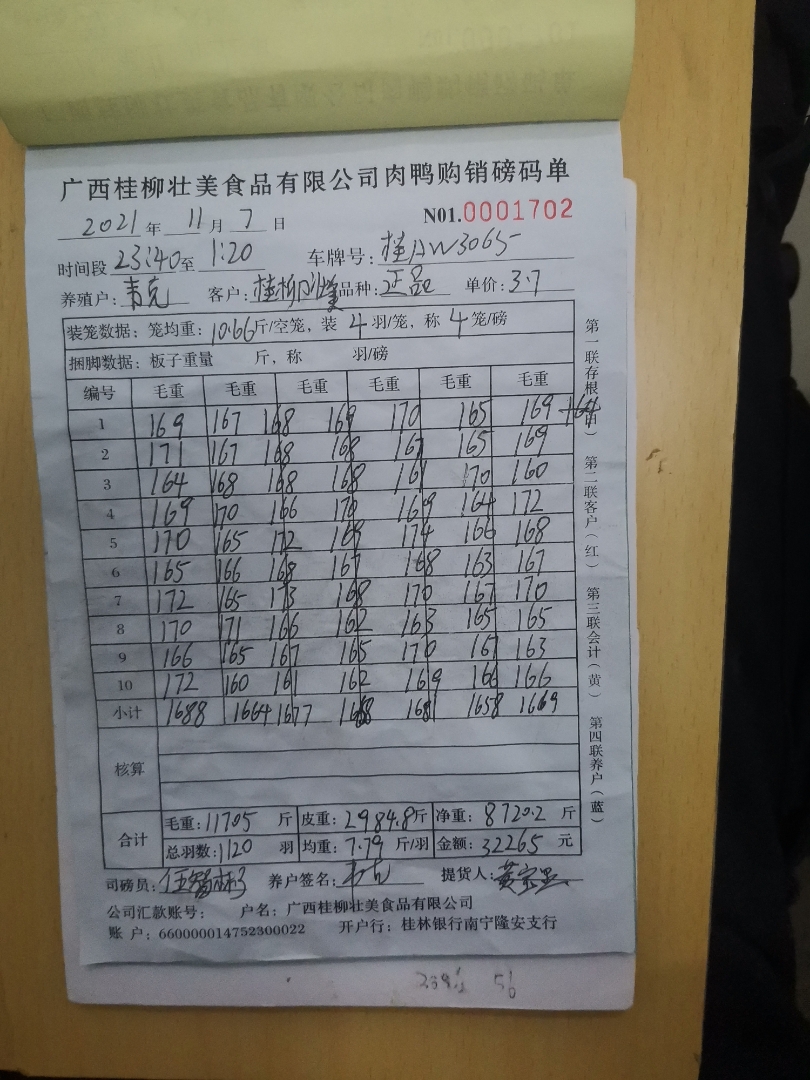 广西桂柳壮美食品有限公司肉鸭购销磅码单
2021 年 11 月 7 日 N01.0001702
时间段 23:40 至 1:20 车牌号: 桂AW3065
养殖户: 韦克 客户: 桂柳 品种: 正品 单价: 3.7
装笼数据: 笼均重: 10.66 斤/空笼, 装 4 羽/笼, 称 4 笼/磅
捆脚数据: 板子重量 斤, 称 羽/磅
编号 毛重 毛重 毛重 毛重 毛重 毛重
1 169 167 168 169 170 165 169
2 171 167 168 168 167 165 169
3 164 168 168 168 161 170 160
4 169 170 166 170 169 164 172
5 170 165 172 169 174 166 168
6 165 166 168 167 168 163 167
7 172 165 173 168 170 167 170
8 170 171 166 162 163 165 165
9 166 165 167 165 170 167 163
10 172 160 161 162 169 166 166
小计 1688 1664 1677 1668 1681 1658 1669
核算
合计 毛重: 11705 斤 皮重: 2984.8 斤 净重: 8720.2 斤
总羽数: 1120 羽 均重: 7.79 斤/羽 金额: 32265 元
司磅员: 养户签名: 韦克 提货人:
公司汇款账号: 户名: 广西桂柳壮美食品有限公司
账 户: 660000014752300022 开户行: 桂林银行南宁隆安支行
第一联存根（白） 第二联客户（红） 第三联会计（黄） 第四联养户（蓝）